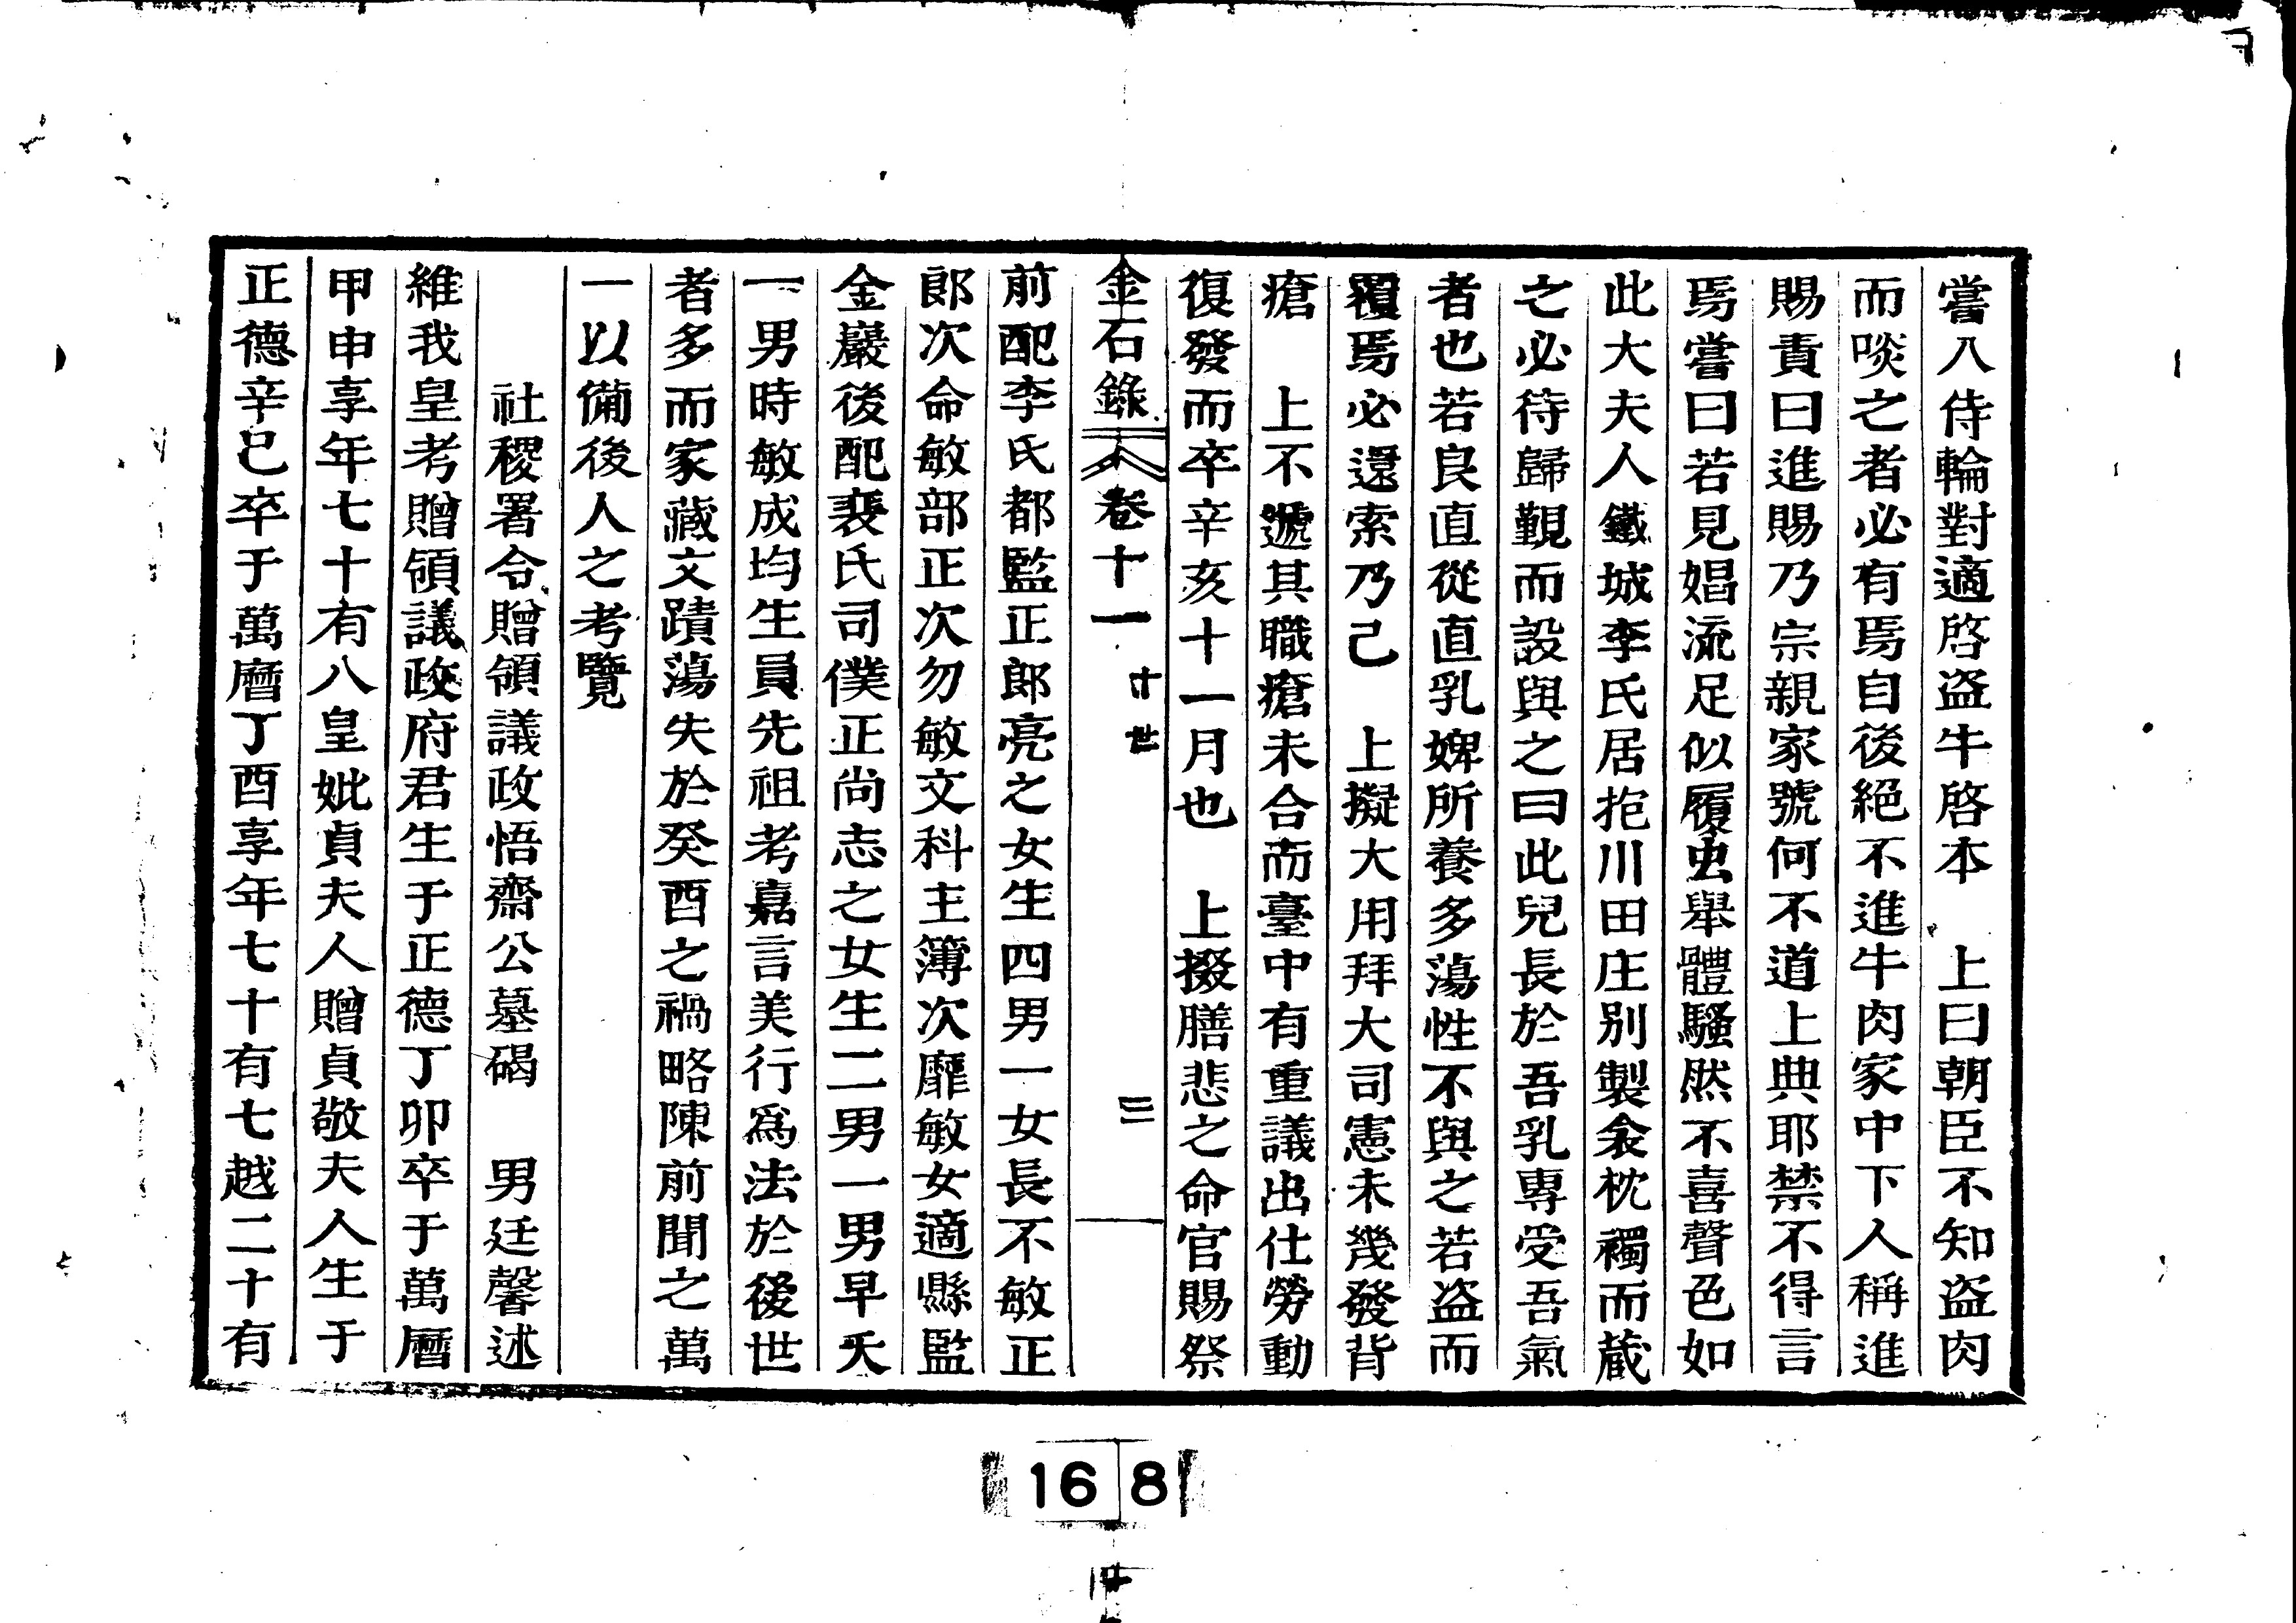 嘗入侍輪對適啓盗牛啓本　上曰朝臣不知盗肉
而啖之者必有焉自後絕不進牛肉家中下人稱進
賜責曰進賜乃宗親家號何不道上典耶禁不得言
焉嘗曰若見娼流足似履虫舉體騷然不喜聲色如
此大夫人鐵城李氏居抱川田庄別製衾枕襡而蔵
之必待歸覲而設與之曰此兒長於吾乳專受吾氣
者也若良直從直乳婢所養多蕩性不與之若盗而
覆焉必還索乃已　上擬大用拜大司憲未幾發背
瘡　上不遞其職瘡未合而臺中有重議出仕勞動
復發而卒辛亥十一月也　上掇膳悲之命官賜祭
金石錄　卷十一　十世　三
前配李氏都監正郎亮之女生四男一女長不敏正
郎次命敏部正次勿敏文科主簿次靡敏女適縣監
金巖後配裵氏司僕正尚志之女生二男一男早夭
一男時敏成均生員先祖考嘉言美行爲法於後世
者多而家藏文蹟蕩失於癸酉之禍略陳前聞之萬
一以備後人之考覽
社稷署令贈領議政悟齋公墓碣　男廷馨述
維我皇考贈領議政府君生于正德丁卯卒于萬曆
甲申享年七十有八皇妣貞夫人贈貞敬夫人生于
正德辛巳卒于萬曆丁酉享年七十有七越二十有
16 8